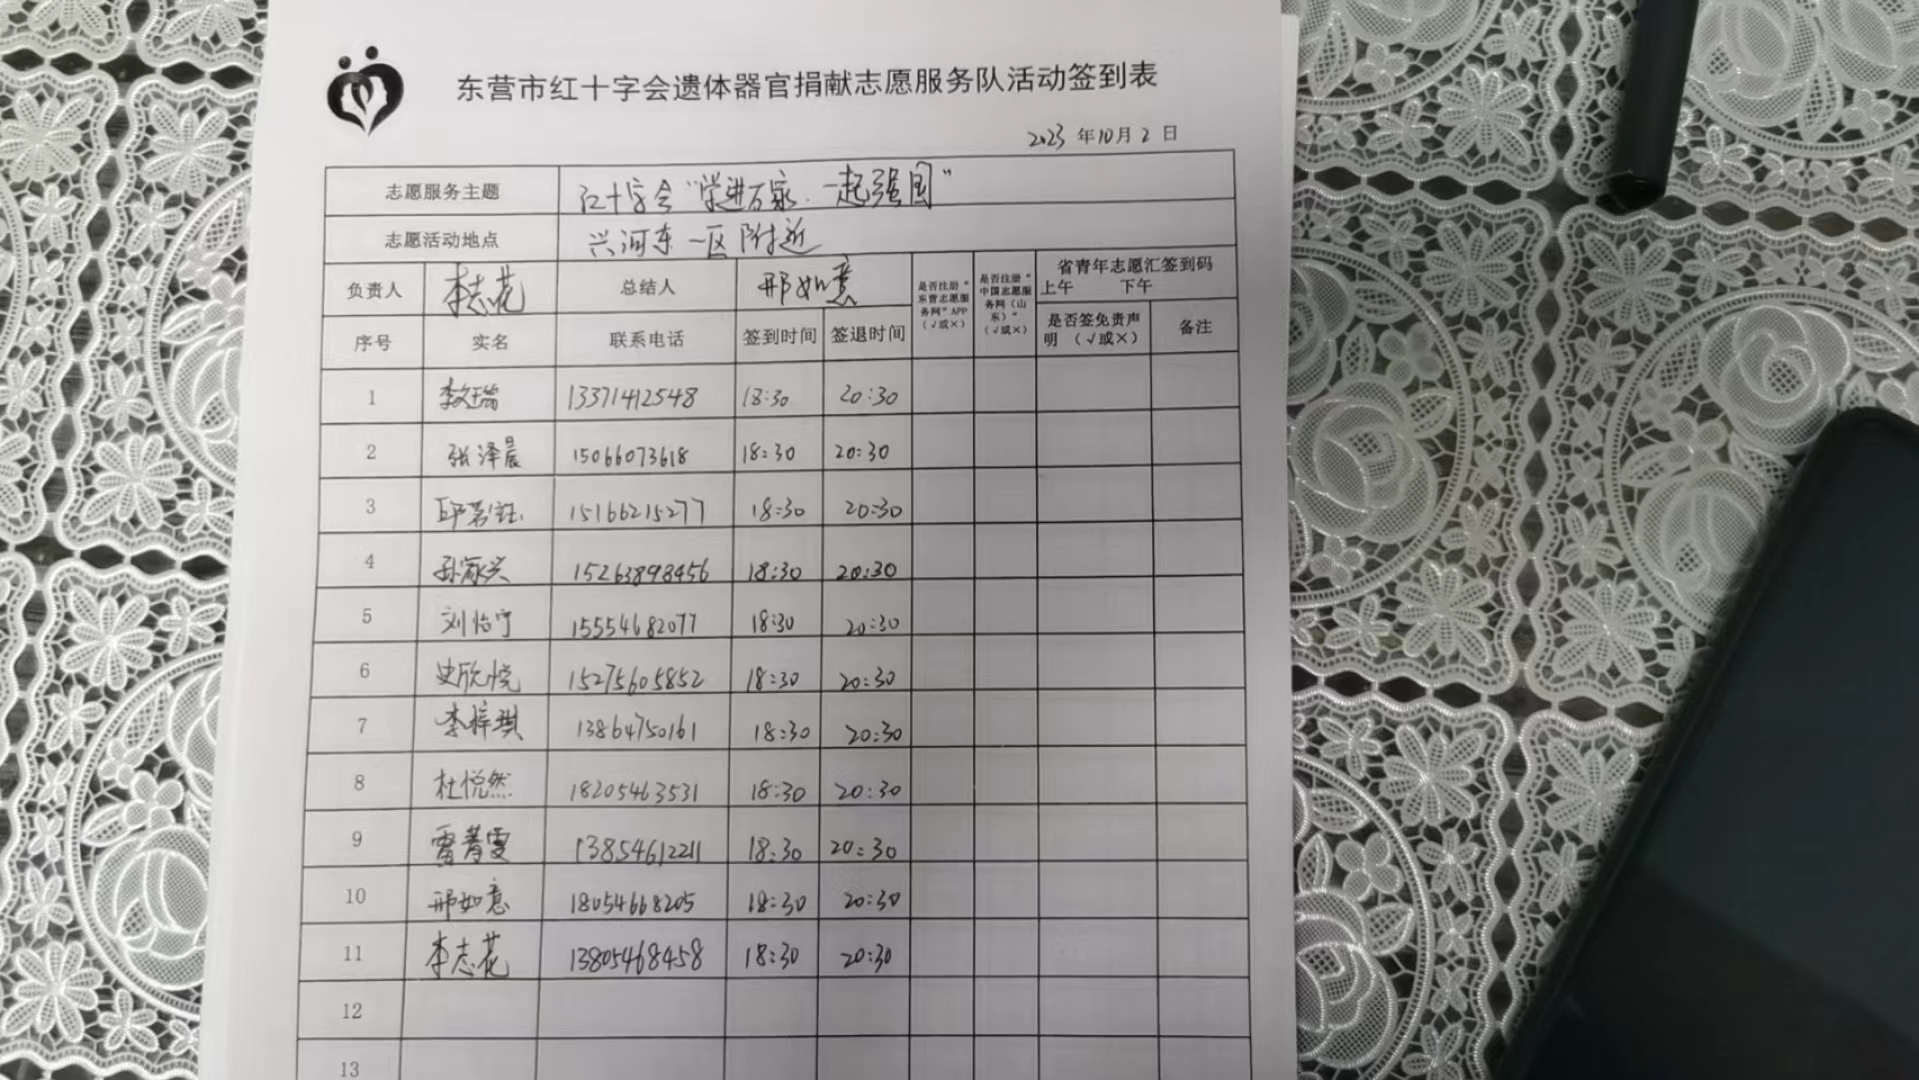 东营市红十字会遗体器官捐献志愿服务队活动签到表
2023 年10月 2 日
志愿服务主题 红十字会“学进万家、一起强国”
志愿活动地点 兴河东一区附近
负责人 李志花 总结人 邢如意 是否注册“东营志愿服务网”APP（√或×） 是否注册“中国志愿服务网（山东）”（√或×） 省青年志愿汇签到码 上午 下午
序号 实名 联系电话 签到时间 签退时间 是否签免责声明（√或×） 备注
1 13371412548 18:30 20:30
2 张泽晨 15066073618 18:30 20:30
3 15166215277 18:30 20:30
4 15263898456 18:30 20:30
5 刘怡宁 15554682077 18:30 20:30
6 史欣悦 15275605852 18:30 20:30
7 李梓琪 13864750161 18:30 20:30
8 杜悦然 18205463531 18:30 20:30
9 13854612211 18:30 20:30
10 邢如意 18054668205 18:30 20:30
11 李志花 13805468458 18:30 20:30
12
13